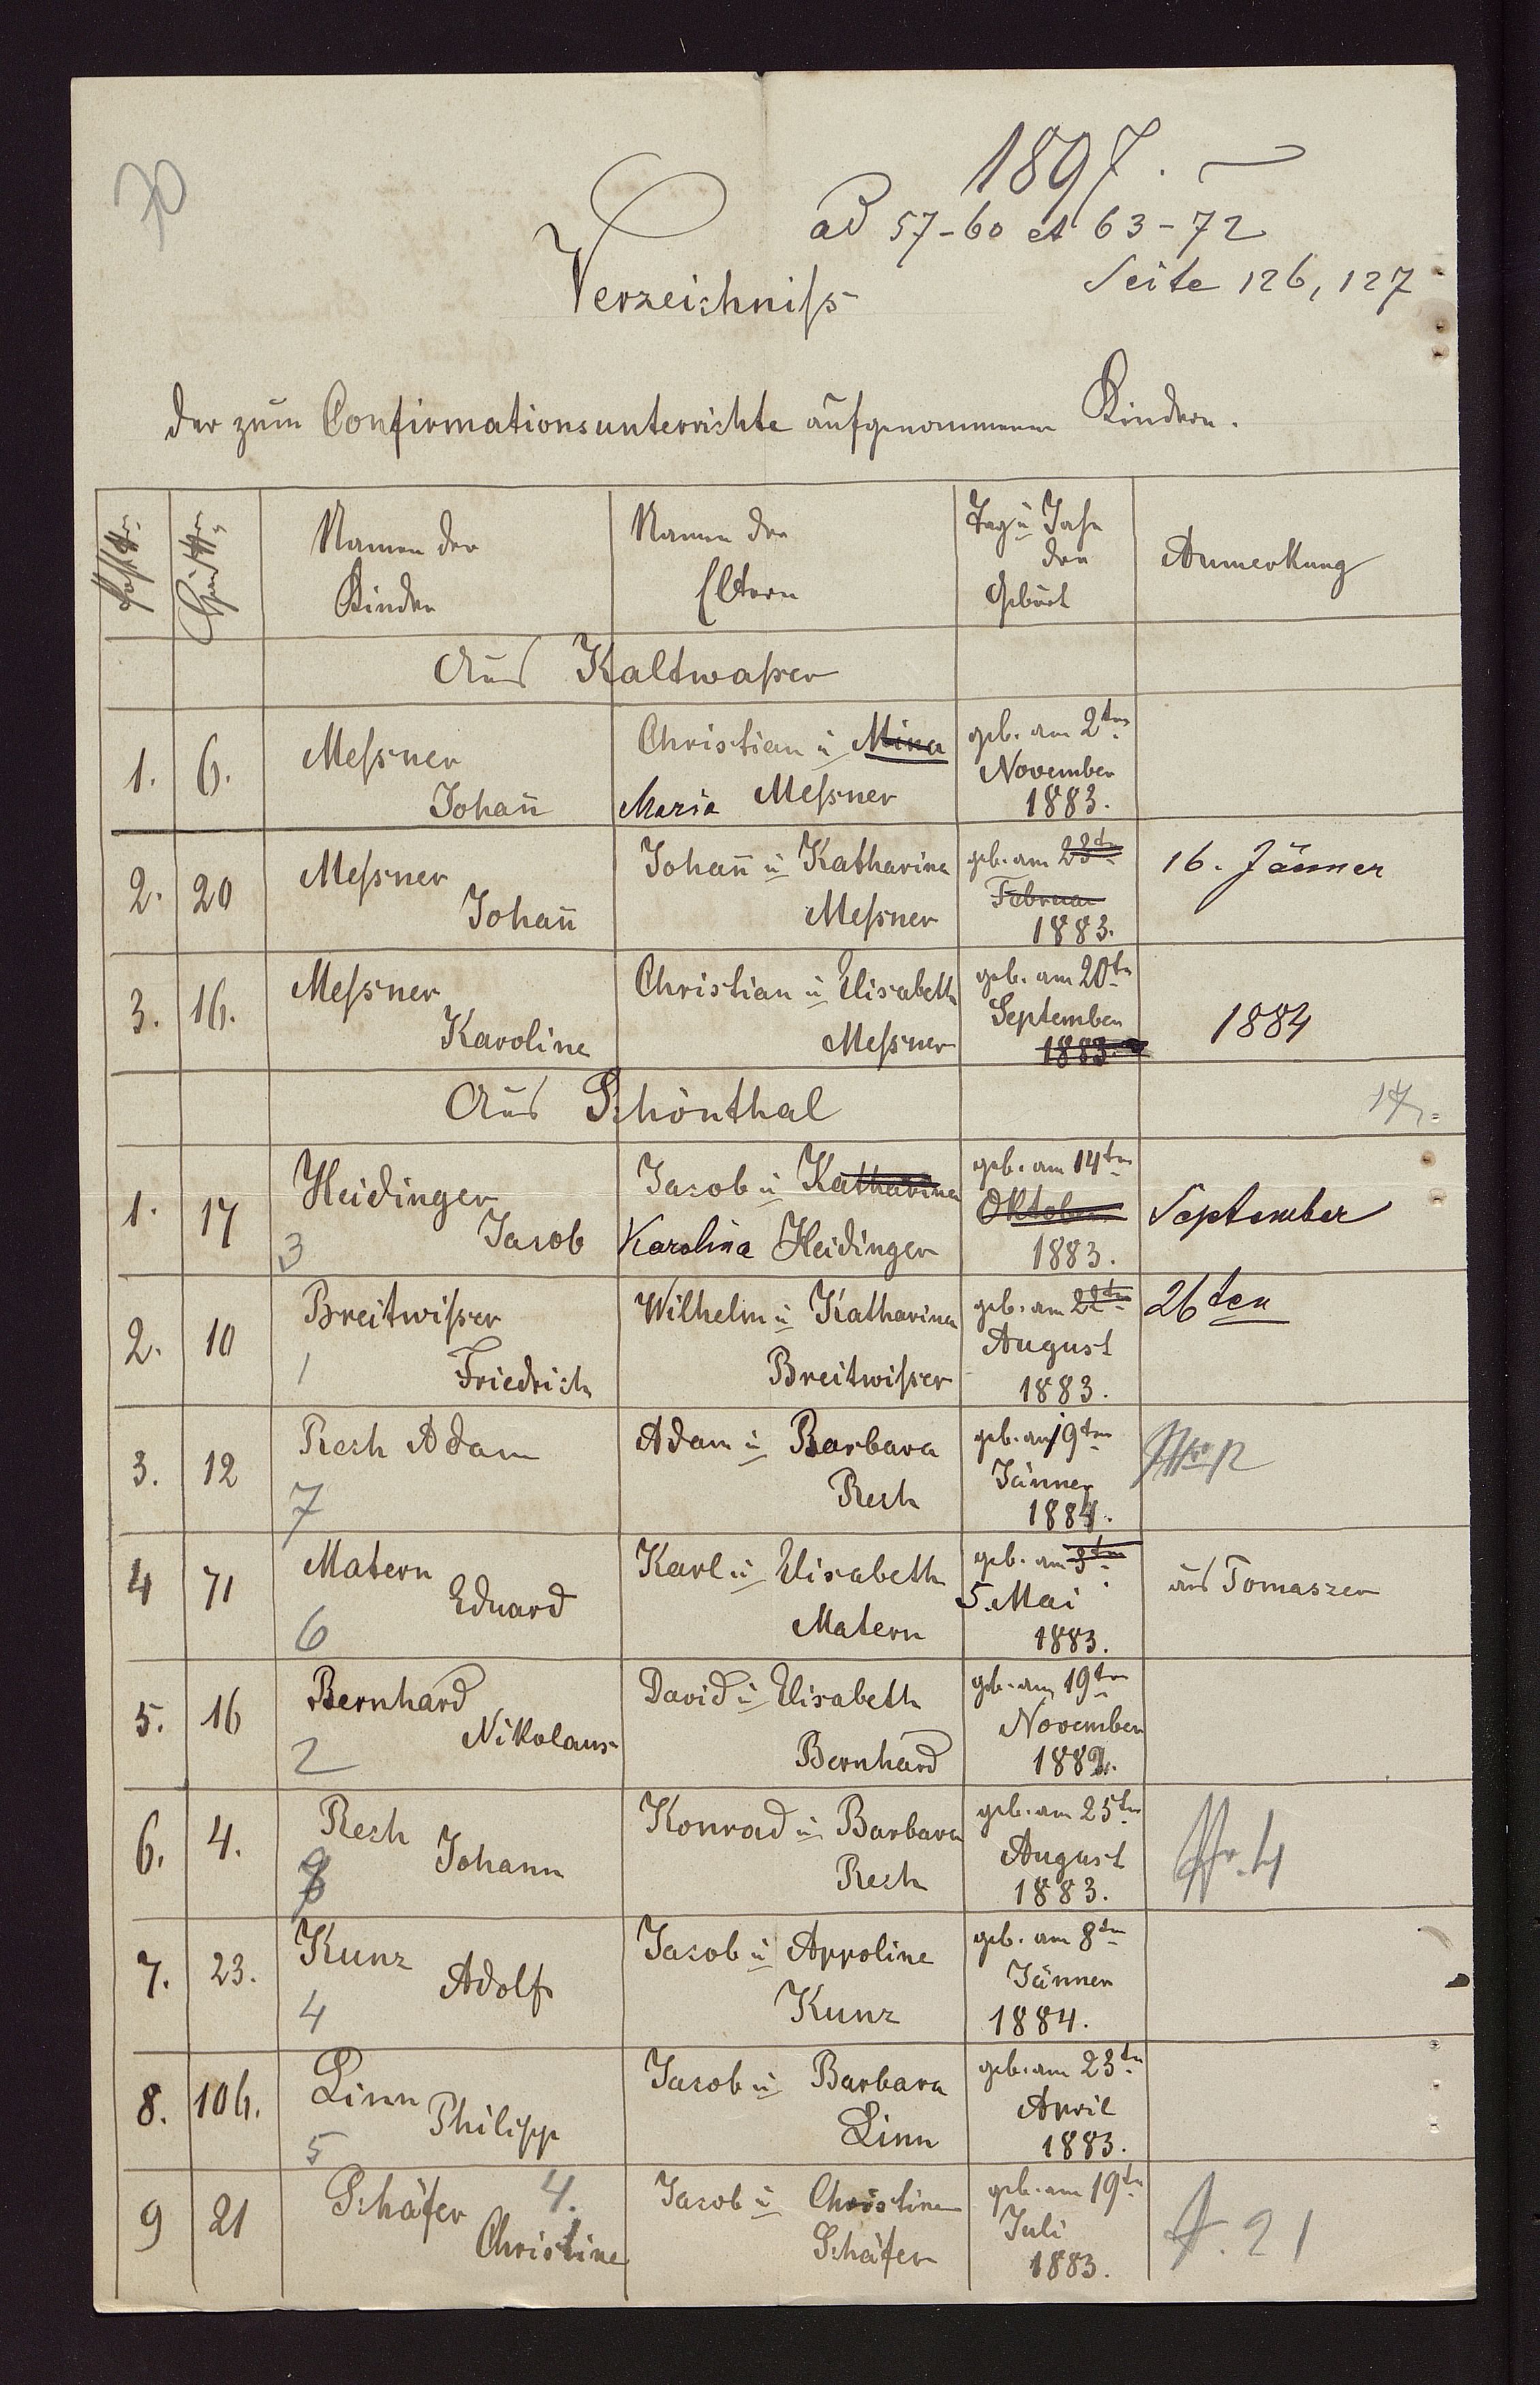 70
1897. —
ad 57-60 et 63-72
Verzeichniß
Seite 126, 127
der zum Confirmationsunterrichte aufgenommenen Kindern.
Post Nr. | Haus Nr. | Namen der Kinder | Namen der Eltern | Tag u Jahr der Geburt | Anmerkung
Aus Kaltwaßer
1. | 6. | Meßner Johañ | Christian u Mina Maria Meßner | geb. am 2ten November 1883.
2. | 20 | Meßner Johañ | Johañ u Katharina Meßner | geb. am 23ten Februar 1883. | 16. Jänner
3. | 16. | Meßner Karoline | Christian u Elisabeth Meßner | geb. am 20ten September 1883. | 1884
Aus Schönthal
1. | 17 | Heidinger Jacob 3 | Jacob u Katharina Karolina Heidinger | geb. am 14ten Oktober 1883. | September
2. | 10 | Breitwißer Friedrich 1 | Wilhelm u Katharina Breitwißer | geb. am 22ten August 1883. | 26ten
3. | 12 | Resch Adam 7 | Adam u Barbara Resch | geb. am 19ten Jänner 1884. | Nr. 12
4 | 71 | Matern Eduard 6 | Karl u Elisabeth Matern | geb. am 3ten 5. Mai 1883. | aus Tomaszer
5. | 16 | Bernhard Nikolaus 2 | David u Elisabeth Bernhard | geb. am 19ten November 1882.
6. | 4. | Resch Johann 8 | Konrad u Barbara Resch | geb. am 25ten August 1883. | Nr. 4
7. | 23. | Kunz Adolf 4 | Jacob u Appoline Kunz | geb. am 8ten Jänner 1884.
8. | 106. | Linn Philipp 5 | Jacob u Barbara Linn | geb. am 23ten April 1883.
9 | 21 | Schäfer Christine 4. | Jacob u Christine Schäfer | geb. am 19ten Juli 1883. | N. 21